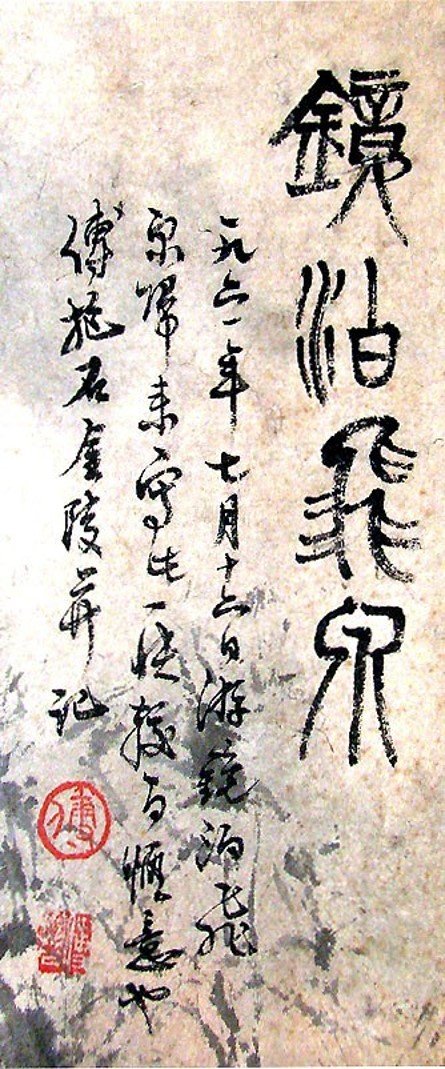 鏡泊飛泉
一九六一年七月十六日游鏡泊飛
泉歸来寫此一張較為愜意也
傅抱石金陵并記
傅